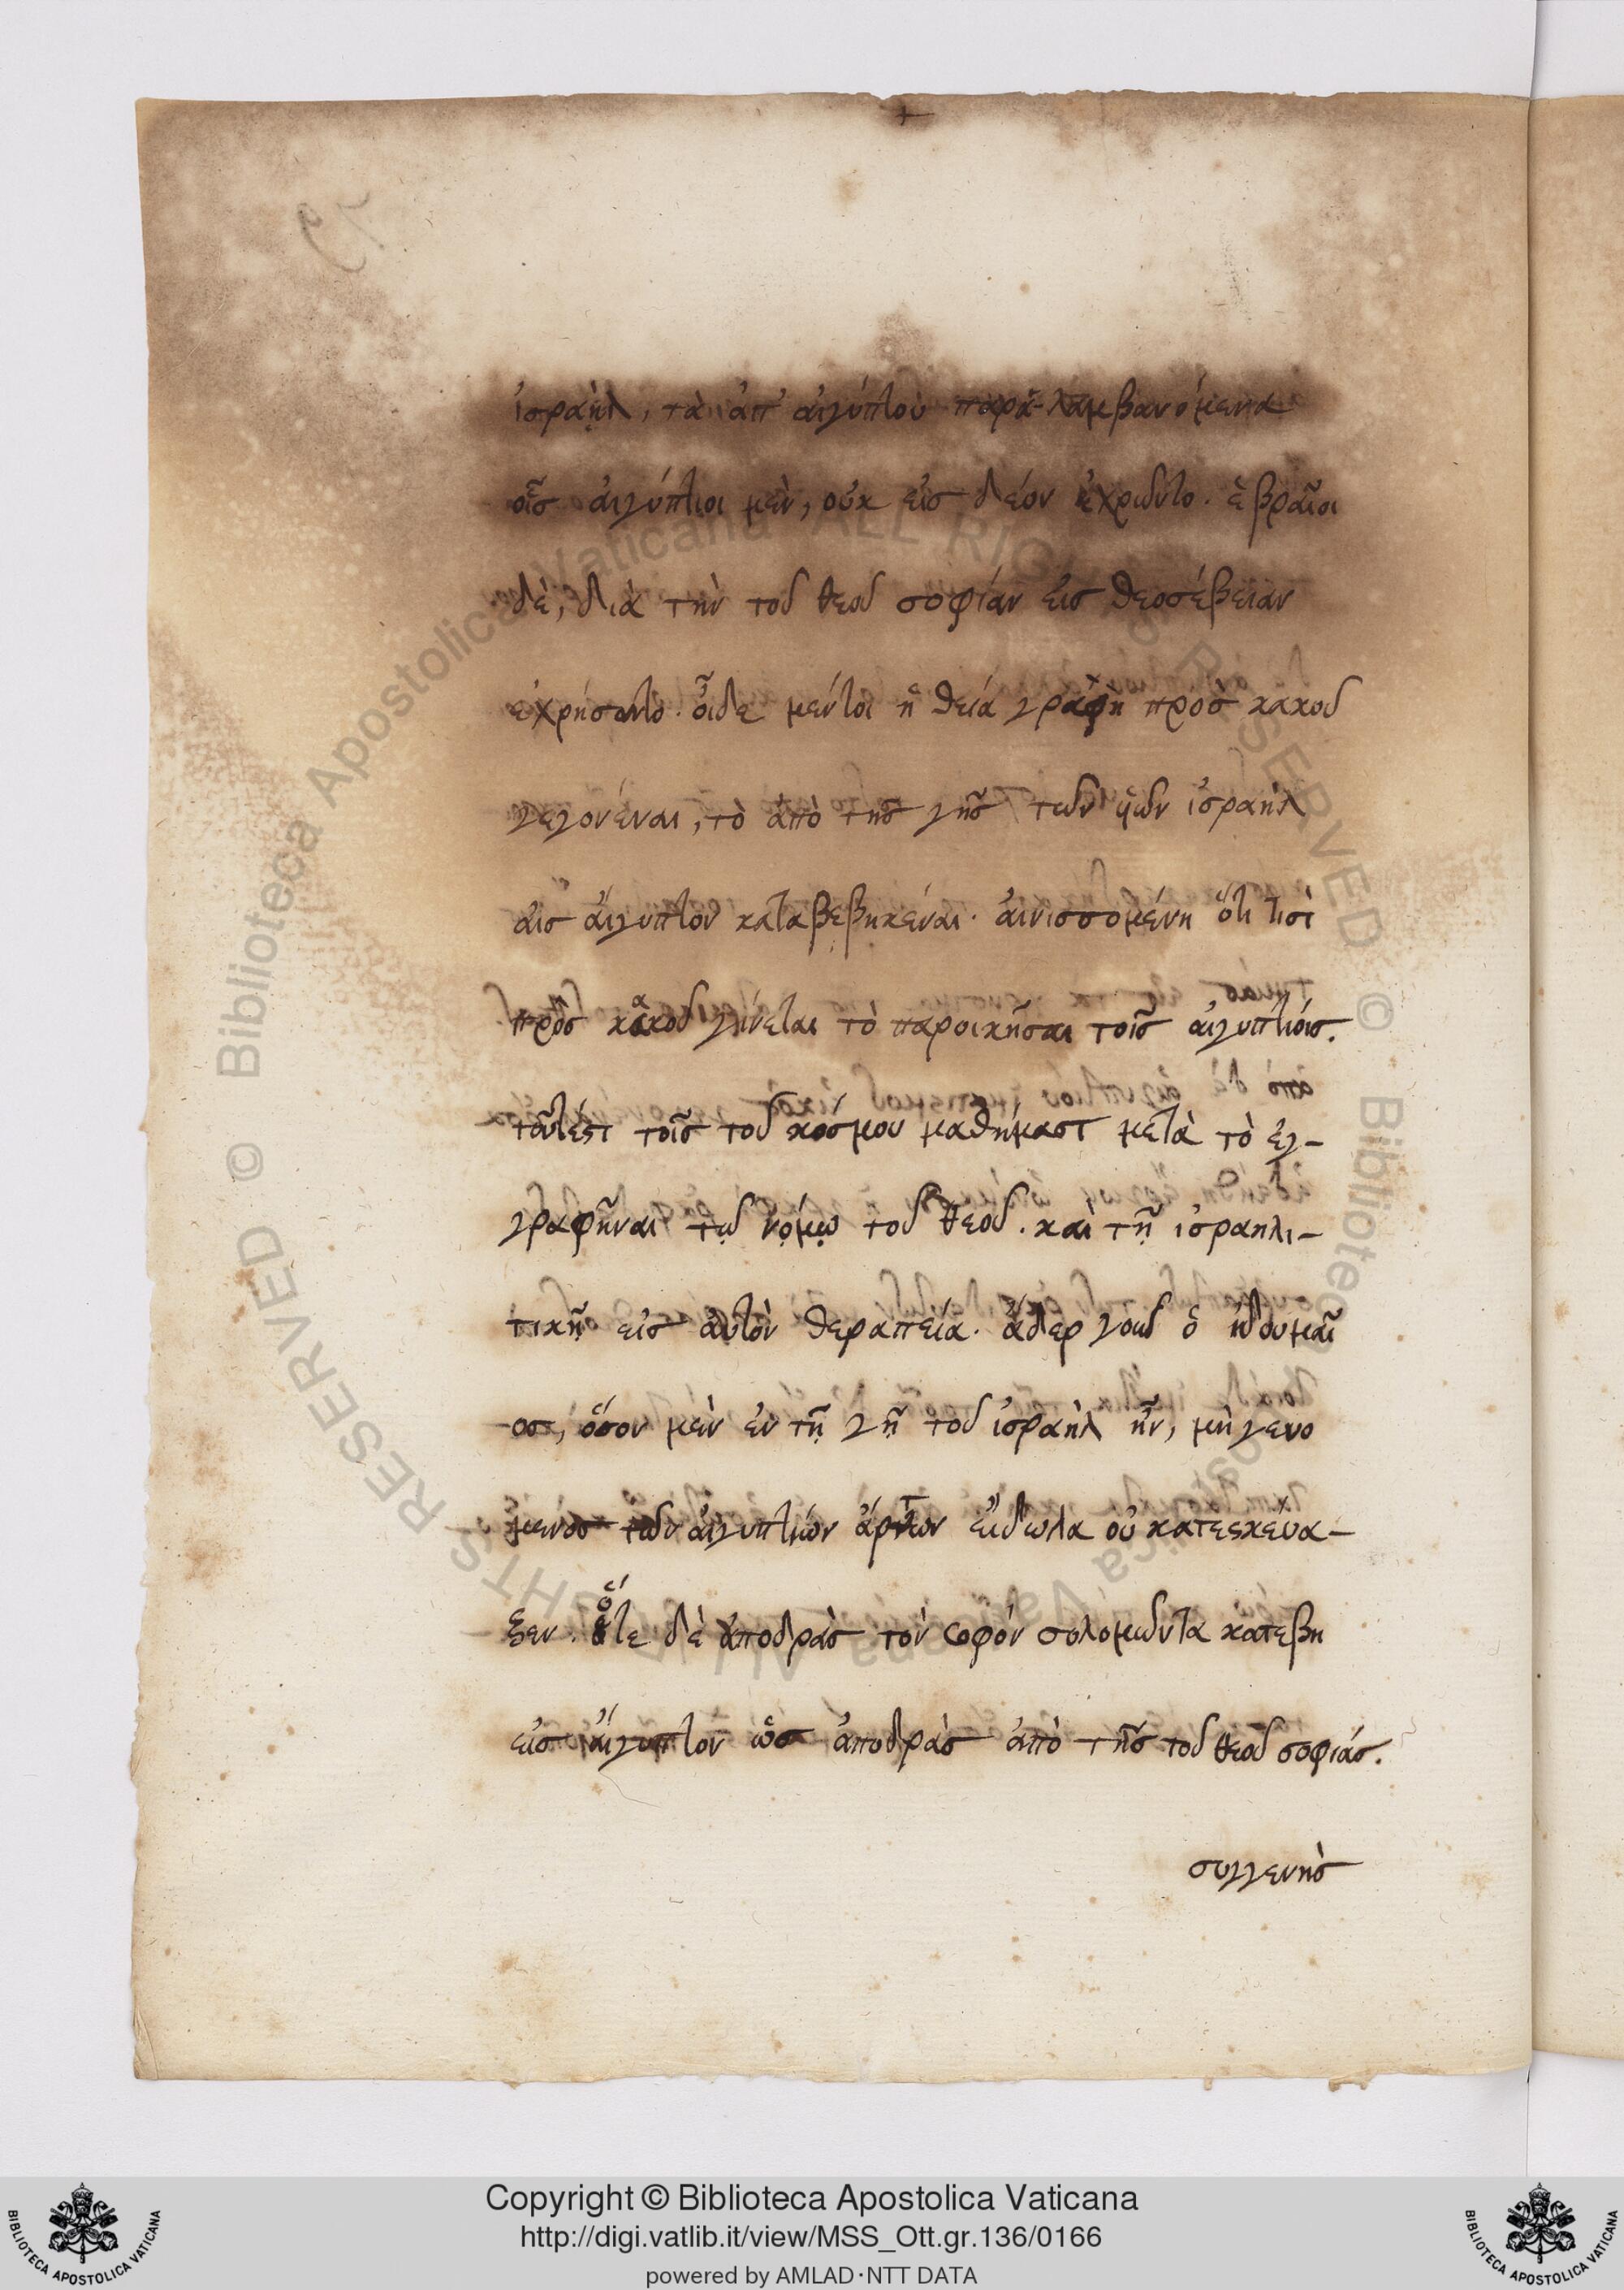 ἰσραὴλ, τὰ ἀπ' αἰγύπτου παραλαμβανόμενα
οἷς αἰγύπτιοι μὲν, οὐκ εἰς δέον ἐχρῶντο. ἑβραῖοι
δὲ, διὰ τὴν τοῦ θεοῦ σοφίαν εἰς θεοσέβειαν
ἐχρήσαντο. οἶδε μέντοι ἡ θεία γραφὴ πρὸς κακοῦ
γεγονέναι, τὸ ἀπὸ τῆς γῆς τῶν υἱῶν ἰσραὴλ
εἰς αἴγυπτον καταβεβηκέναι. αἰνισσομένη ὅτι τισὶ
πρὸς κακοῦ γίνεται τὸ παροικῆσαι τοῖς αἰγυπτίοις.
ταυτέστι τοῖς τοῦ κόσμου μαθήμασι μετὰ τὸ ἐγ-
γραφῆναι τῷ νόμῳ τοῦ θεοῦ. καὶ τῇ ἰσραηλι-
τικῇ εἰς αὐτὸν θεραπεία. ἄδερ γοῦν ὁ ἰδουμαῖ
ος, ὅσον μὲν ἐν τῇ γῇ τοῦ ἰσραὴλ ἦν, μὴ γενο
μενος τῶν αἰγυπτίων ἄρτων εἴδωλα οὐ κατεσκεύα-
ξεν. ὅτε δὲ ἀποδρὰς τὸν σοφὸν σολομῶντα κατέβη
εἰς αἴγυπτον ὡς ἀποδρὰς ἀπὸ τῆς τοῦ θεοῦ σοφίας.
συγγενὴς
Copyright © Biblioteca Apostolica Vaticana
http://digi.vatlib.it/view/MSS_Ott.gr.136/0166
powered by AMLAD·NTT DATA